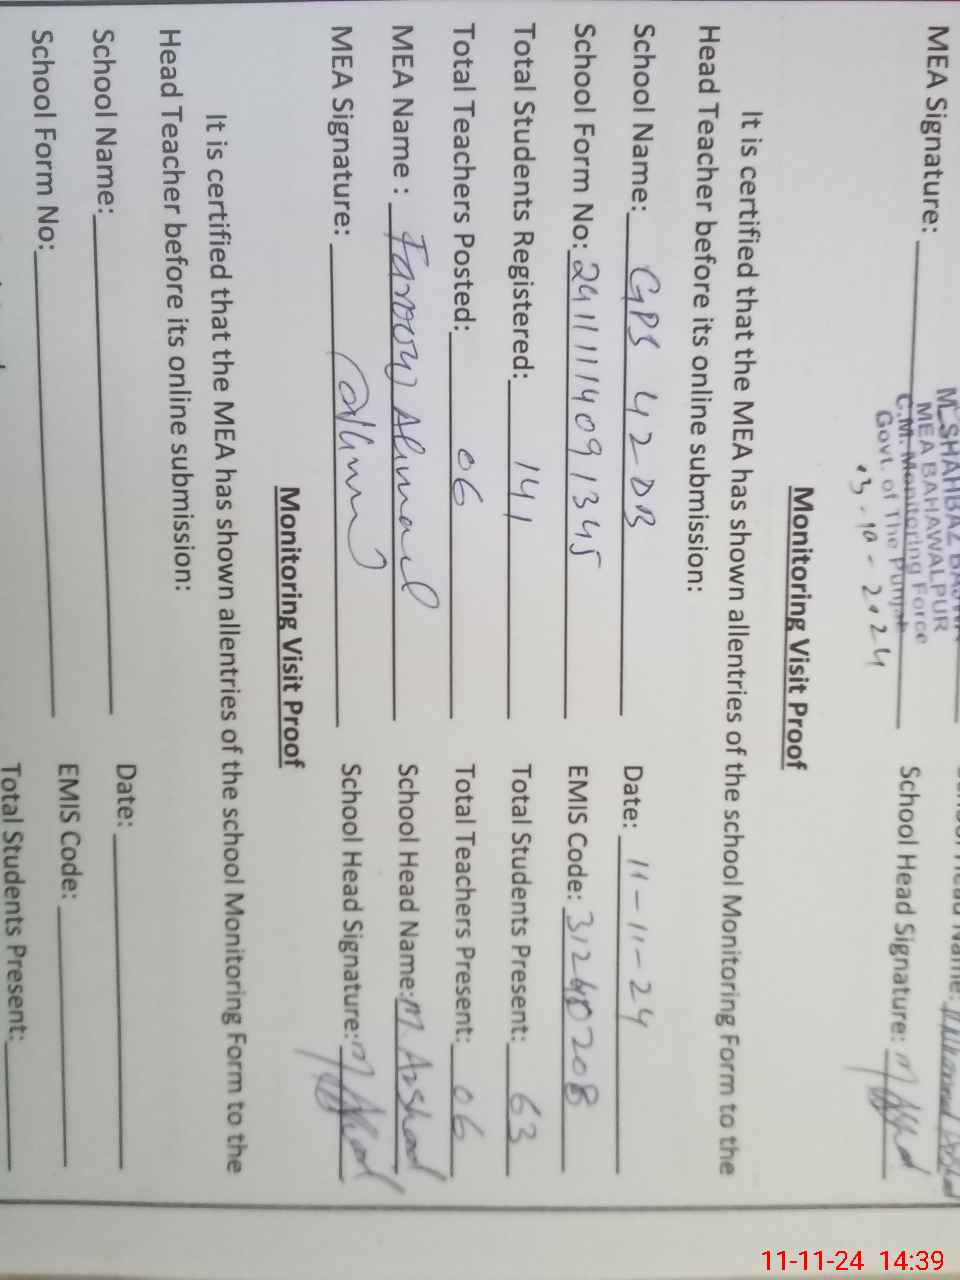 M. SHAHBAZ
MEA BAHAWALPUR
MEA Signature: C.M. Monitoring Force School Head Signature:
Govt. of The Punjab
13-10-2024
Monitoring Visit Proof
It is certified that the MEA has shown allentries of the school Monitoring Form to the
Head Teacher before its online submission:
School Name: GPS 42DB Date: 11-11-24
School Form No: 2411114091345 EMIS Code: 31240208
Total Students Registered: 141 Total Students Present: 63
Total Teachers Posted: 06 Total Teachers Present: 06
MEA Name : Farooq Ahmad School Head Name: M. Arshad
MEA Signature: School Head Signature:
Monitoring Visit Proof
It is certified that the MEA has shown allentries of the school Monitoring Form to the
Head Teacher before its online submission:
School Name: Date:
School Form No: EMIS Code:
Total Students Present:
11-11-24 14:39